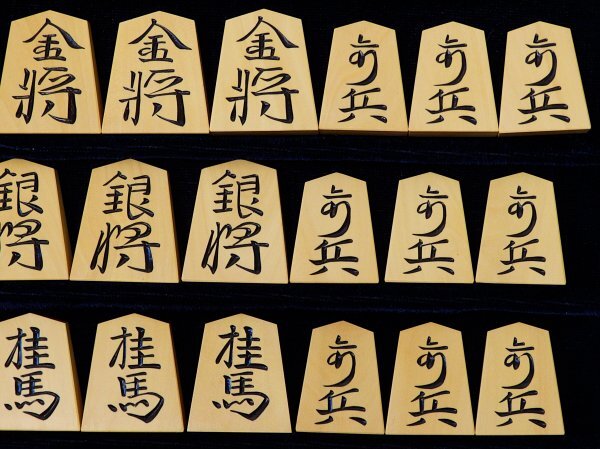 金将 金将 金将 歩兵 歩兵 歩兵
銀将 銀将 銀将 歩兵 歩兵 歩兵
桂馬 桂馬 桂馬 歩兵 歩兵 歩兵